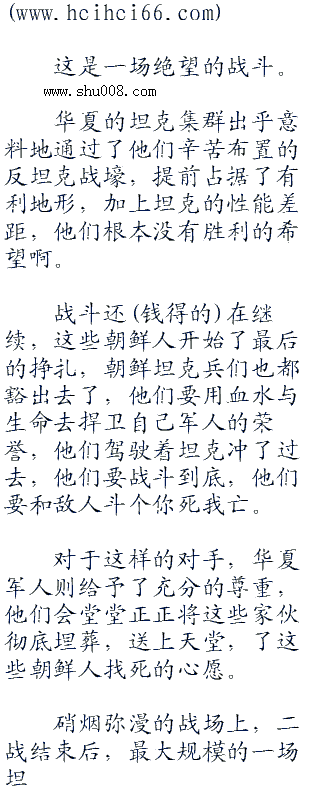 (www.hcihci66.com)
这是一场绝望的战斗。
www.shu008.com
华夏的坦克集群出乎意
料地通过了他们辛苦布置的
反坦克战壕，提前占据了有
利地形，加上坦克的性能差
距，他们根本没有胜利的希
望啊。
战斗还(钱得的)在继
续，这些朝鲜人开始了最后
的挣扎，朝鲜坦克兵们也都
豁出去了，他们要用血水与
生命去捍卫自己军人的荣
誉，他们驾驶着坦克冲了过
去，他们要战斗到底，他们
要和敌人斗个你死我亡。
对于这样的对手，华夏
军人则给予了充分的尊重，
他们会堂堂正正将这些家伙
彻底埋葬，送上天堂，了这
些朝鲜人找死的心愿。
硝烟弥漫的战场上，二
战结束后，最大规模的一场
坦